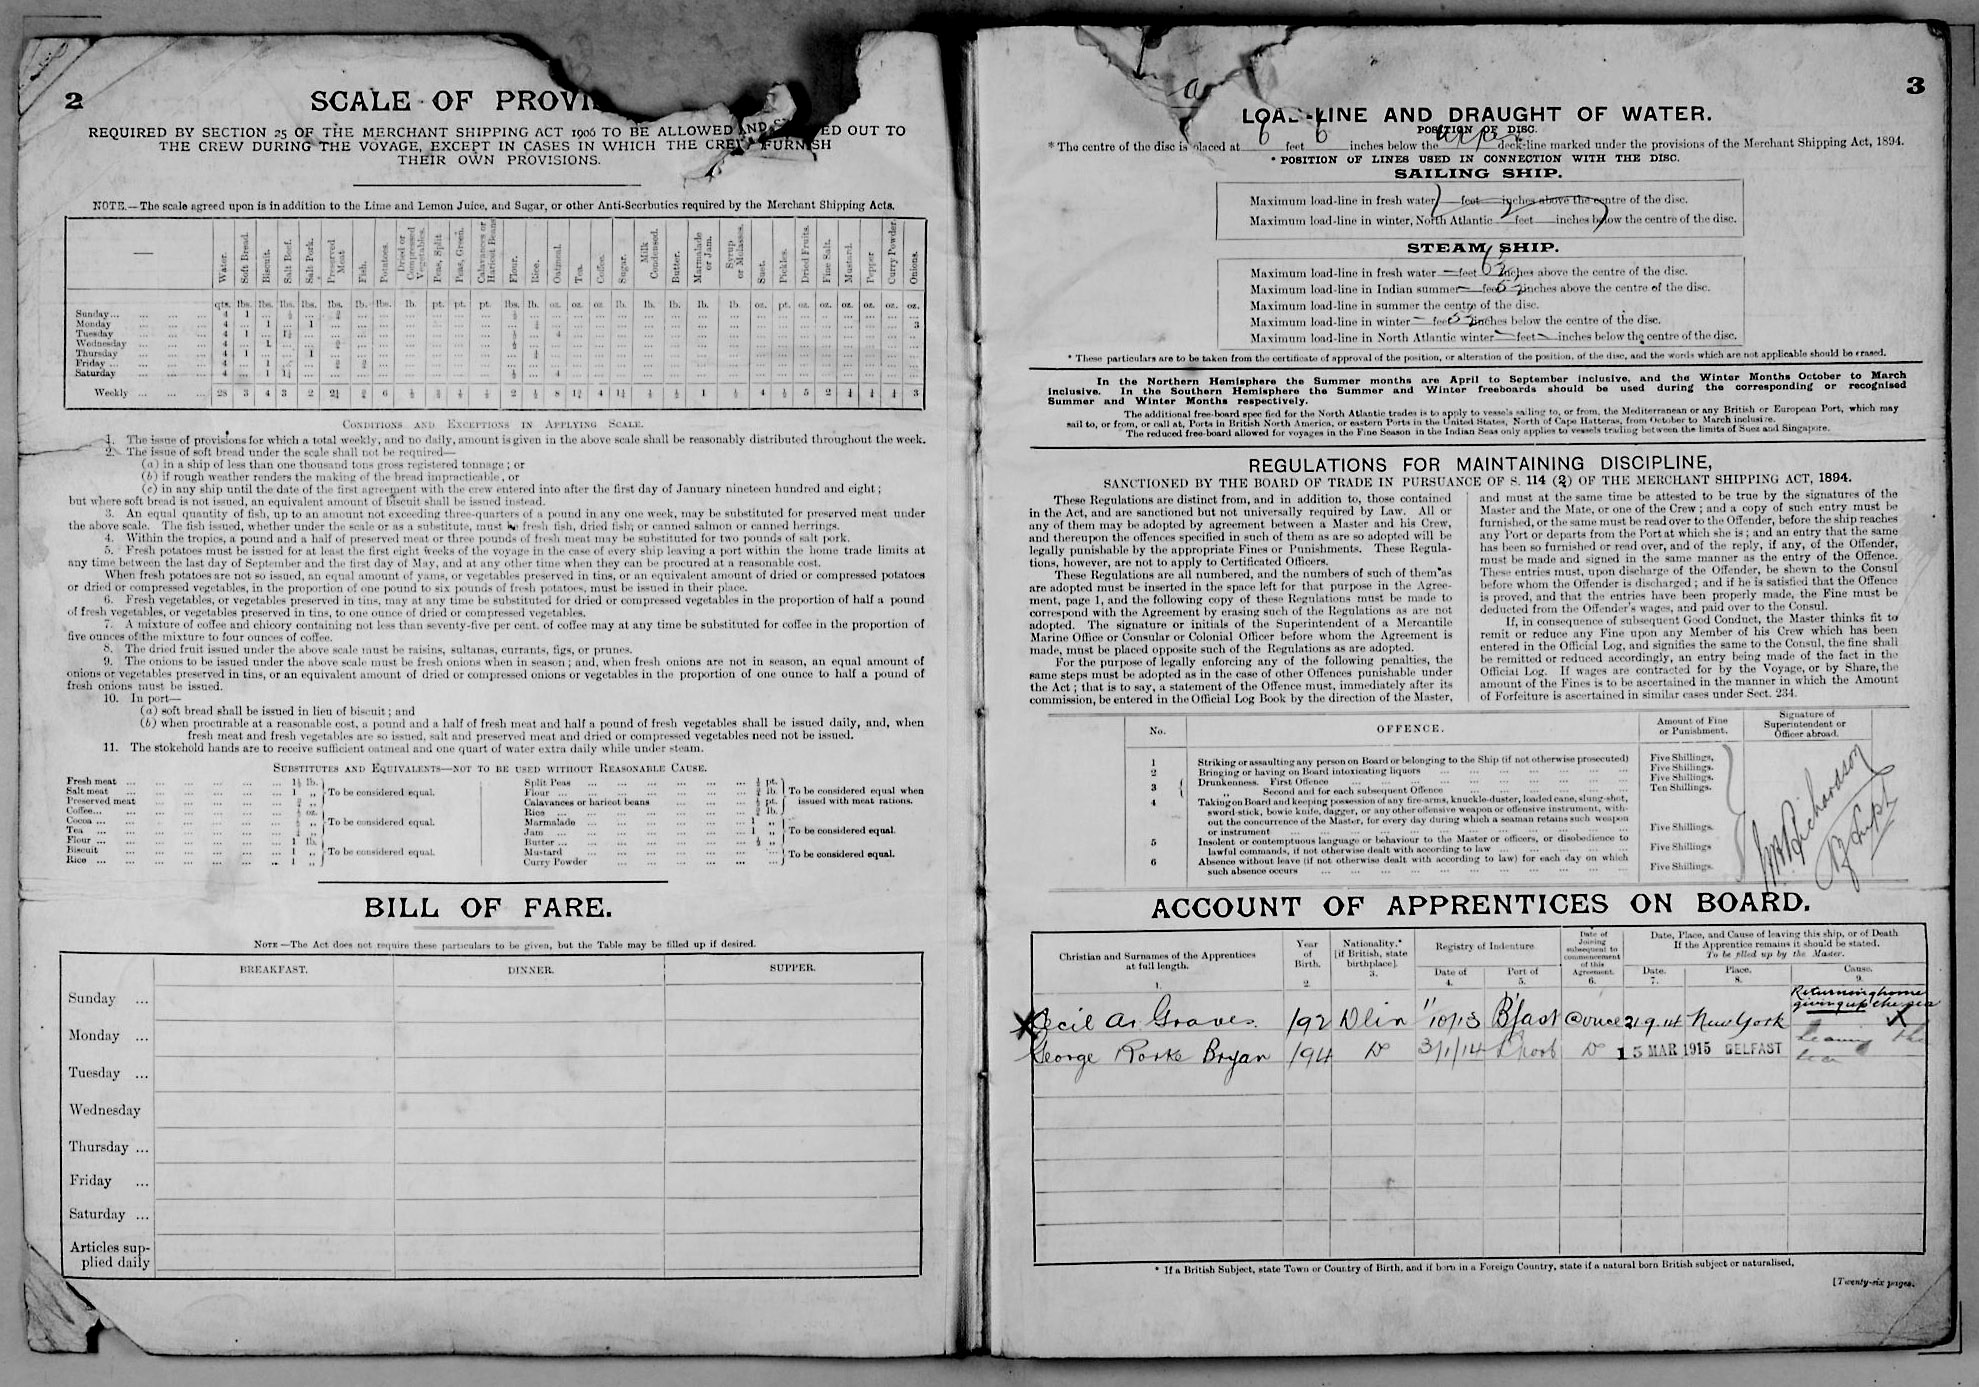 2
SCALE OF
REQUIRED BY SECTION 25 OF THE MERCHANT SHIPPING ACT 1906 TO BE ALLOWED AND OUT TO
THE CREW DURING THE VOYAGE, EXCEPT IN CASES IN WHICH THE CREW FURNISH
THEIR OWN PROVISIONS.
NOTE.—The scale agreed upon is in addition to the Lime and Lemon Juice, and Sugar, or other Anti-Scorbutics required by the Merchant Shipping Acts.
Water. Soft Bread. Biscuit. Salt Beef. Salt Pork. Preserved Meat Fish. Potatoes. Dried or Compressed Vegetables. Peas, Split Peas, Green. Calavances or Haricot Beans Flour. Rice. Oatmeal. Tea. Coffee. Sugar. Milk Condensed. Butter. Marmalade or Jam. Syrup or Molasses. Suet. Pickles. Dried Fruits. Fine Salt. Mustard. Pepper Curry Powder. Onions.
qts. lbs. lbs. lbs. lbs. lbs. lb. lbs. lb. pt. pt. pt. lbs. lb. oz. oz. oz. lb. lb. lb. lb. lb. oz. pt. oz. oz. oz. oz. oz. oz.
Sunday... 4 1
Monday 4 1 1 3
Tuesday 4 1 4
Wednesday 4 1
Thursday 4 1 1
Friday ... 4 1
Saturday 4 1 4
Weekly 28 3 4 3 2 6 2 8 4 1 4 5 2 3
CONDITIONS AND EXCEPTIONS IN APPLYING SCALE.
1. The issue of provisions for which a total weekly, and no daily, amount is given in the above scale shall be reasonably distributed throughout the week.
2. The issue of soft bread under the scale shall not be required—
(a) in a ship of less than one thousand tons gross registered tonnage ; or
(b) if rough weather renders the making of the bread impracticable, or
(c) in any ship until the date of the first agreement with the crew entered into after the first day of January nineteen hundred and eight ;
but where soft bread is not issued, an equivalent amount of biscuit shall be issued instead.
3. An equal quantity of fish, up to an amount not exceeding three-quarters of a pound in any one week, may be substituted for preserved meat under
the above scale. The fish issued, whether under the scale or as a substitute, must be fresh fish, dried fish, or canned salmon or canned herrings.
4. Within the tropics, a pound and a half of preserved meat or three pounds of fresh meat may be substituted for two pounds of salt pork.
5. Fresh potatoes must be issued for at least the first eight weeks of the voyage in the case of every ship leaving a port within the home trade limits at
any time between the last day of September and the first day of May, and at any other time when they can be procured at a reasonable cost.
When fresh potatoes are not so issued, an equal amount of yams, or vegetables preserved in tins, or an equivalent amount of dried or compressed potatoes
or dried or compressed vegetables, in the proportion of one pound to six pounds of fresh potatoes, must be issued in their place.
6. Fresh vegetables, or vegetables preserved in tins, may at any time be substituted for dried or compressed vegetables in the proportion of half a pound
of fresh vegetables, or vegetables preserved in tins, to one ounce of dried or compressed vegetables.
7. A mixture of coffee and chicory containing not less than seventy-five per cent. of coffee may at any time be substituted for coffee in the proportion of
five ounces of the mixture to four ounces of coffee.
8. The dried fruit issued under the above scale must be raisins, sultanas, currants, figs, or prunes.
9. The onions to be issued under the above scale must be fresh onions when in season ; and, when fresh onions are not in season, an equal amount of
onions or vegetables preserved in tins, or an equivalent amount of dried or compressed onions or vegetables in the proportion of one ounce to half a pound of
fresh onions must be issued.
10. In port—
(a) soft bread shall be issued in lieu of biscuit ; and
(b) when procurable at a reasonable cost, a pound and a half of fresh meat and half a pound of fresh vegetables shall be issued daily, and, when
fresh meat and fresh vegetables are so issued, salt and preserved meat and dried or compressed vegetables need not be issued.
11. The stokehold hands are to receive sufficient oatmeal and one quart of water extra daily while under steam.
SUBSTITUTES AND EQUIVALENTS—NOT TO BE USED WITHOUT REASONABLE CAUSE.
Fresh meat ... 1½ lb.
Salt meat ... 1 „ To be considered equal.
Preserved meat
Coffee... oz.
Cocoa ... To be considered equal.
Tea ...
Flour ... 1 lb.
Biscuit 1 „ To be considered equal.
Rice ... 1 „
Split Peas pt.
Flour ... lb. To be considered equal when
Calavances or haricot beans pt. issued with meat rations.
Rice ... lb.
Marmalade 1 „
Jam ... 1 „ To be considered equal.
Butter ... ½ „
Mustard To be considered equal.
Curry Powder
BILL OF FARE.
NOTE—The Act does not require these particulars to be given, but the Table may be filled up if desired.
BREAKFAST. DINNER. SUPPER.
Sunday ...
Monday ...
Tuesday ...
Wednesday
Thursday ...
Friday ...
Saturday ...
Articles sup-
plied daily
3
LOAD-LINE AND DRAUGHT OF WATER.
POSITION OF DISC.
* The centre of the disc is placed at 6 feet 6 inches below the upper deck-line marked under the provisions of the Merchant Shipping Act, 1894.
* POSITION OF LINES USED IN CONNECTION WITH THE DISC.
SAILING SHIP.
Maximum load-line in fresh water feet inches above the centre of the disc.
Maximum load-line in winter, North Atlantic feet inches below the centre of the disc.
STEAM SHIP.
Maximum load-line in fresh water — feet inches above the centre of the disc.
Maximum load-line in Indian summer — feet inches above the centre of the disc.
Maximum load-line in summer the centre of the disc.
Maximum load-line in winter — feet inches below the centre of the disc.
Maximum load-line in North Atlantic winter — feet — inches below the centre of the disc.
* These particulars are to be taken from the certificate of approval of the position, or alteration of the position, of the disc, and the words which are not applicable should be erased.
In the Northern Hemisphere the Summer months are April to September inclusive, and the Winter Months October to March
inclusive. In the Southern Hemisphere the Summer and Winter freeboards should be used during the corresponding or recognised
Summer and Winter Months respectively.
The additional free-board specified for the North Atlantic trades is to apply to vessels sailing to, or from, the Mediterranean or any British or European Port, which may
sail to, or from, or call at, Ports in British North America, or eastern Ports in the United States, North of Cape Hatteras, from October to March inclusive.
The reduced free-board allowed for voyages in the Fine Season in the Indian Seas only applies to vessels trading between the limits of Suez and Singapore.
REGULATIONS FOR MAINTAINING DISCIPLINE,
SANCTIONED BY THE BOARD OF TRADE IN PURSUANCE OF S. 114 (2) OF THE MERCHANT SHIPPING ACT, 1894.
These Regulations are distinct from, and in addition to, those contained
in the Act, and are sanctioned but not universally required by Law. All or
any of them may be adopted by agreement between a Master and his Crew,
and thereupon the offences specified in such of them as are so adopted will be
legally punishable by the appropriate Fines or Punishments. These Regula-
tions, however, are not to apply to Certificated Officers.
These Regulations are all numbered, and the numbers of such of them as
are adopted must be inserted in the space left for that purpose in the Agree-
ment, page 1, and the following copy of these Regulations must be made to
correspond with the Agreement by erasing such of the Regulations as are not
adopted. The signature or initials of the Superintendent of a Mercantile
Marine Office or Consular or Colonial Officer before whom the Agreement is
made, must be placed opposite such of the Regulations as are adopted.
For the purpose of legally enforcing any of the following penalties, the
same steps must be adopted as in the case of other Offences punishable under
the Act ; that is to say, a statement of the Offence must, immediately after its
commission, be entered in the Official Log Book by the direction of the Master,
and must at the same time be attested to be true by the signatures of the
Master and the Mate, or one of the Crew ; and a copy of such entry must be
furnished, or the same must be read over to the Offender, before the ship reaches
any Port or departs from the Port at which she is ; and an entry that the same
has been so furnished or read over, and of the reply, if any, of the Offender,
must be made and signed in the same manner as the entry of the Offence.
These entries must, upon discharge of the Offender, be shewn to the Consul
before whom the Offender is discharged ; and if he is satisfied that the Offence
is proved, and that the entries have been properly made, the Fine must be
deducted from the Offender's wages, and paid over to the Consul.
If, in consequence of subsequent Good Conduct, the Master thinks fit to
remit or reduce any Fine upon any Member of his Crew which has been
entered in the Official Log, and signifies the same to the Consul, the fine shall
be remitted or reduced accordingly, an entry being made of the fact in the
Official Log. If wages are contracted for by the Voyage, or by Share, the
amount of the Fines is to be ascertained in the manner in which the Amount
of Forfeiture is ascertained in similar cases under Sect. 234.
No. OFFENCE. Amount of Fine or Punishment. Signature of Superintendent or Officer abroad.
1 Striking or assaulting any person on Board or belonging to the Ship (if not otherwise prosecuted) Five Shillings,
2 Bringing or having on Board intoxicating liquors ... Five Shillings.
3 Drunkenness. First Offence ... Five Shillings.
„ Second and for each subsequent Offence ... Ten Shillings.
4 Taking on Board and keeping possession of any fire-arms, knuckle-duster, loaded cane, slung-shot,
sword-stick, bowie knife, dagger, or any other offensive weapon or offensive instrument, with-
out the concurrence of the Master, for every day during which a seaman retains such weapon
or instrument ... Five Shillings.
5 Insolent or contemptuous language or behaviour to the Master or officers, or disobedience to
lawful commands, if not otherwise dealt with according to law ... Five Shillings
6 Absence without leave (if not otherwise dealt with according to law) for each day on which
such absence occurs ... Five Shillings.
Richardson
Supt
ACCOUNT OF APPRENTICES ON BOARD.
Christian and Surnames of the Apprentices at full length. 1. Year of Birth. 2. Nationality.* [if British, state birthplace]. 3. Registry of Indenture. Date of 4. Port of 5. Date of Joining subsequent to commencement of this Agreement. 6. Date, Place, and Cause of leaving this ship, or of Death
If the Apprentice remains it should be stated.
To be filled up by the Master.
Date. 7. Place. 8. Cause. 9.
X Cecil Ar Graves. 192 Dlin 11/10/13 B'fast @ once 21 9.14 New York Returning home giving up the sea X
George Rorke Bryan 194 Do 3/1/14 L'pool Do 15 MAR 1915 BELFAST Leaving the sea
* If a British Subject, state Town or Country of Birth, and if born in a Foreign Country, state if a natural born British subject or naturalised,
[Twenty-six pages.